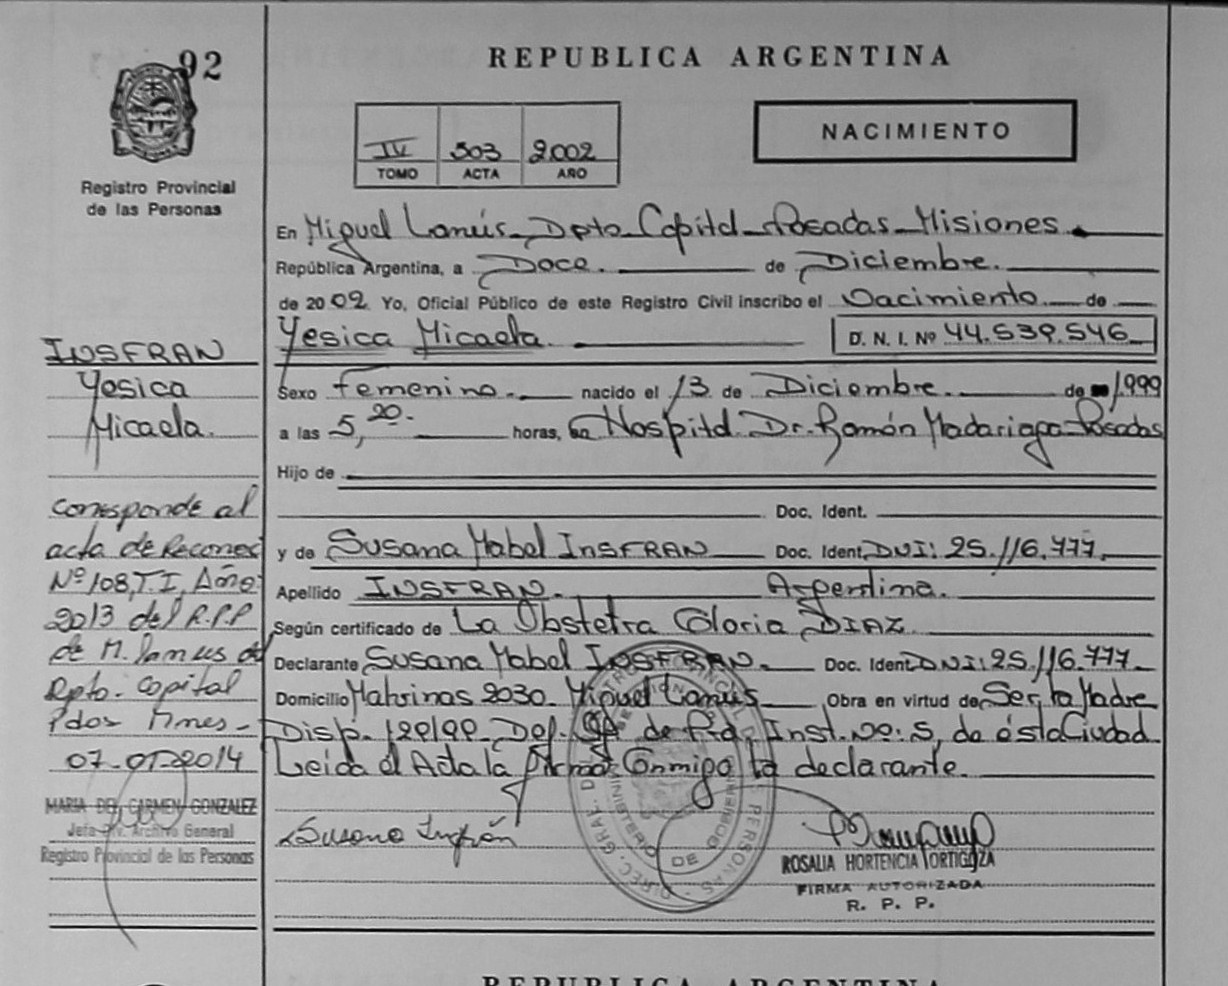 92
REPUBLICA ARGENTINA
Registro Provincial
de las Personas
IV 503 2.002
TOMO ACTA AÑO
NACIMIENTO
En Miguel Lanús - Dpto Capital - Posadas - Misiones
República Argentina, a Doce. de Diciembre.
de 2002 Yo, Oficial Público de este Registro Civil inscribo el Nacimiento de
Yesica Micaela. D. N. I. Nº 44.539.546
Sexo Femenino. nacido el 13 de Diciembre. de 1.999
a las 5,20. horas, en Hospital Dr. Ramón Madariaga - Posadas
Hijo de
Doc. Ident.
y de Susana Mabel INSFRAN Doc. Ident. DNI: 25.116.777.
Apellido INSFRAN. Argentina.
Según certificado de La Obstetra Gloria DIAZ.
Declarante Susana Mabel INSFRAN. Doc. Ident. DNI: 25.116.777.
Domicilio Malvinas 2030. Miguel Lanús Obra en virtud de Ser la Madre
Disp. 120/99. Def. de Inst. Nº: 5, de ésta Ciudad.
Leida el Acta la firma Conmigo la declarante.
Susana Insfrán
ROSALIA HORTENCIA ORTIGOZA
FIRMA AUTORIZADA
R. P. P.
INSFRAN
Yesica
Micaela.
corresponde al
acta de Reconoc
Nº 108, T. I, Año:
2013 del R.P.P
de M. Lanus del
Dpto. Capital
Pdas Mnes -
2014
MARIA DEL CARMEN GONZALEZ
Jefa Div. Archivo General
Registro Provincial de las Personas
REPUBLICA ARGENTINA